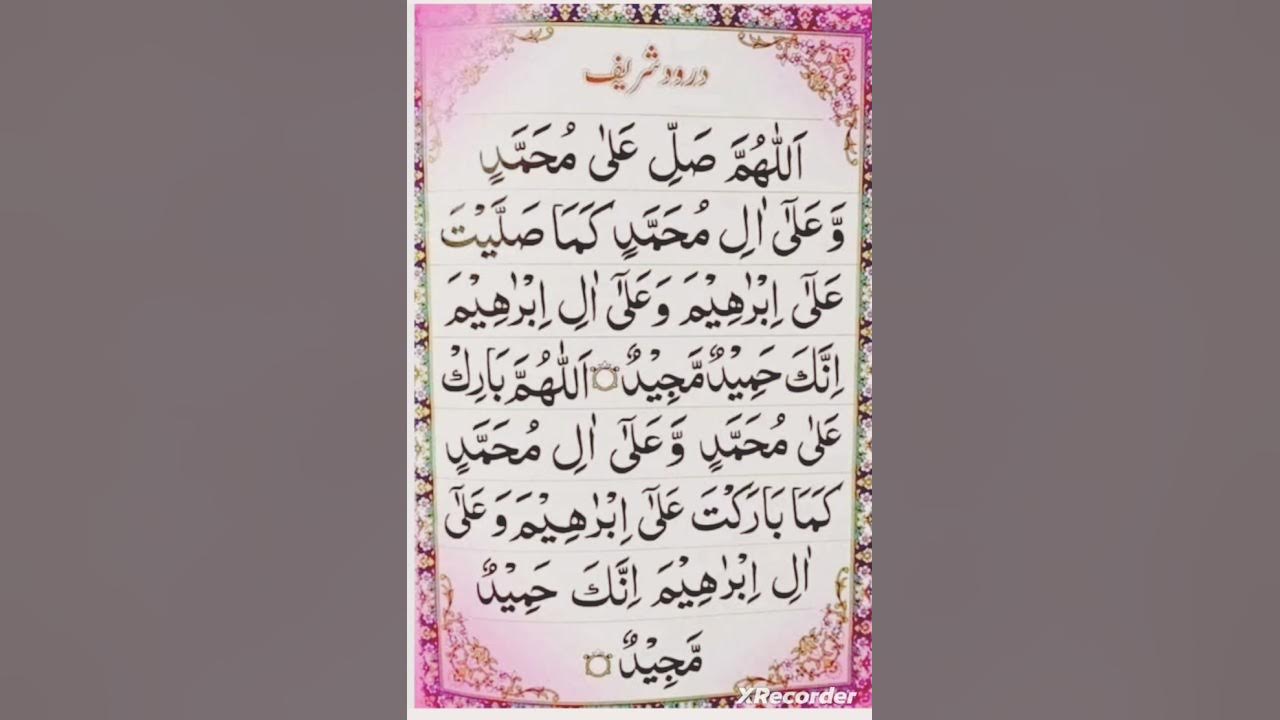 درود شریف
اَللّٰهُمَّ صَلِّ عَلٰى مُحَمَّدٍ
وَّعَلٰٓى اٰلِ مُحَمَّدٍ كَمَا صَلَّيْتَ
عَلٰٓى اِبْرٰهِيْمَ وَعَلٰٓى اٰلِ اِبْرٰهِيْمَ
اِنَّكَ حَمِيْدٌ مَّجِيْدٌ۝ اَللّٰهُمَّ بَارِكْ
عَلٰى مُحَمَّدٍ وَّعَلٰٓى اٰلِ مُحَمَّدٍ
كَمَا بَارَكْتَ عَلٰٓى اِبْرٰهِيْمَ وَعَلٰٓى
اٰلِ اِبْرٰهِيْمَ اِنَّكَ حَمِيْدٌ
مَّجِيْدٌ۝
XRecorder